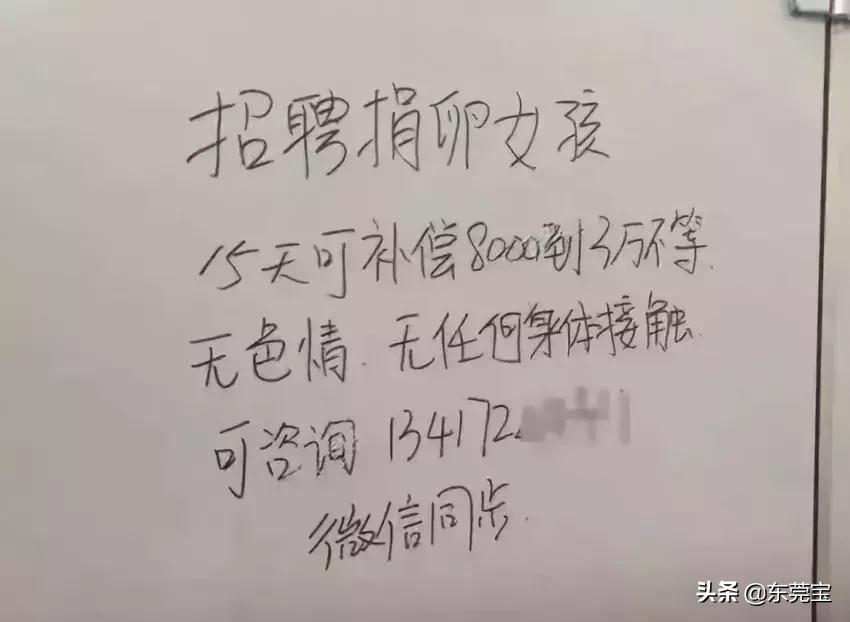 招聘捐卵女孩
15天可补偿8000到3万不等.
无色情.无任何身体接触.
可咨询 134172
微信同步.
头条 @东莞宝